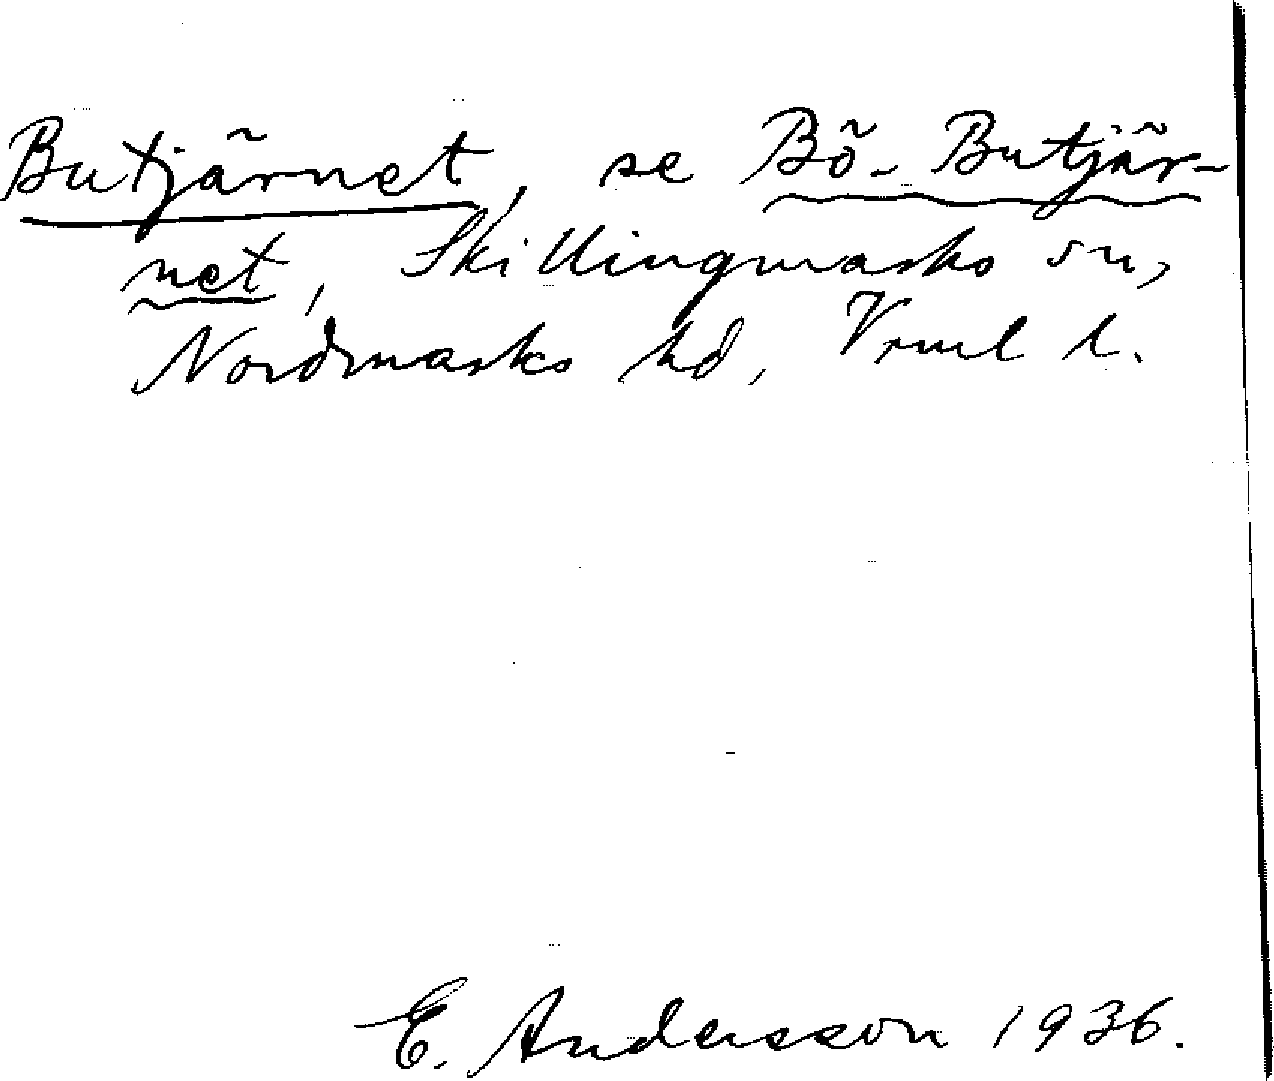 Butjärnet, se Bö-Butjär-
net, Skillingmarks sn,
Nordmarks hd, Vrml l.
E. Andersson 1936.